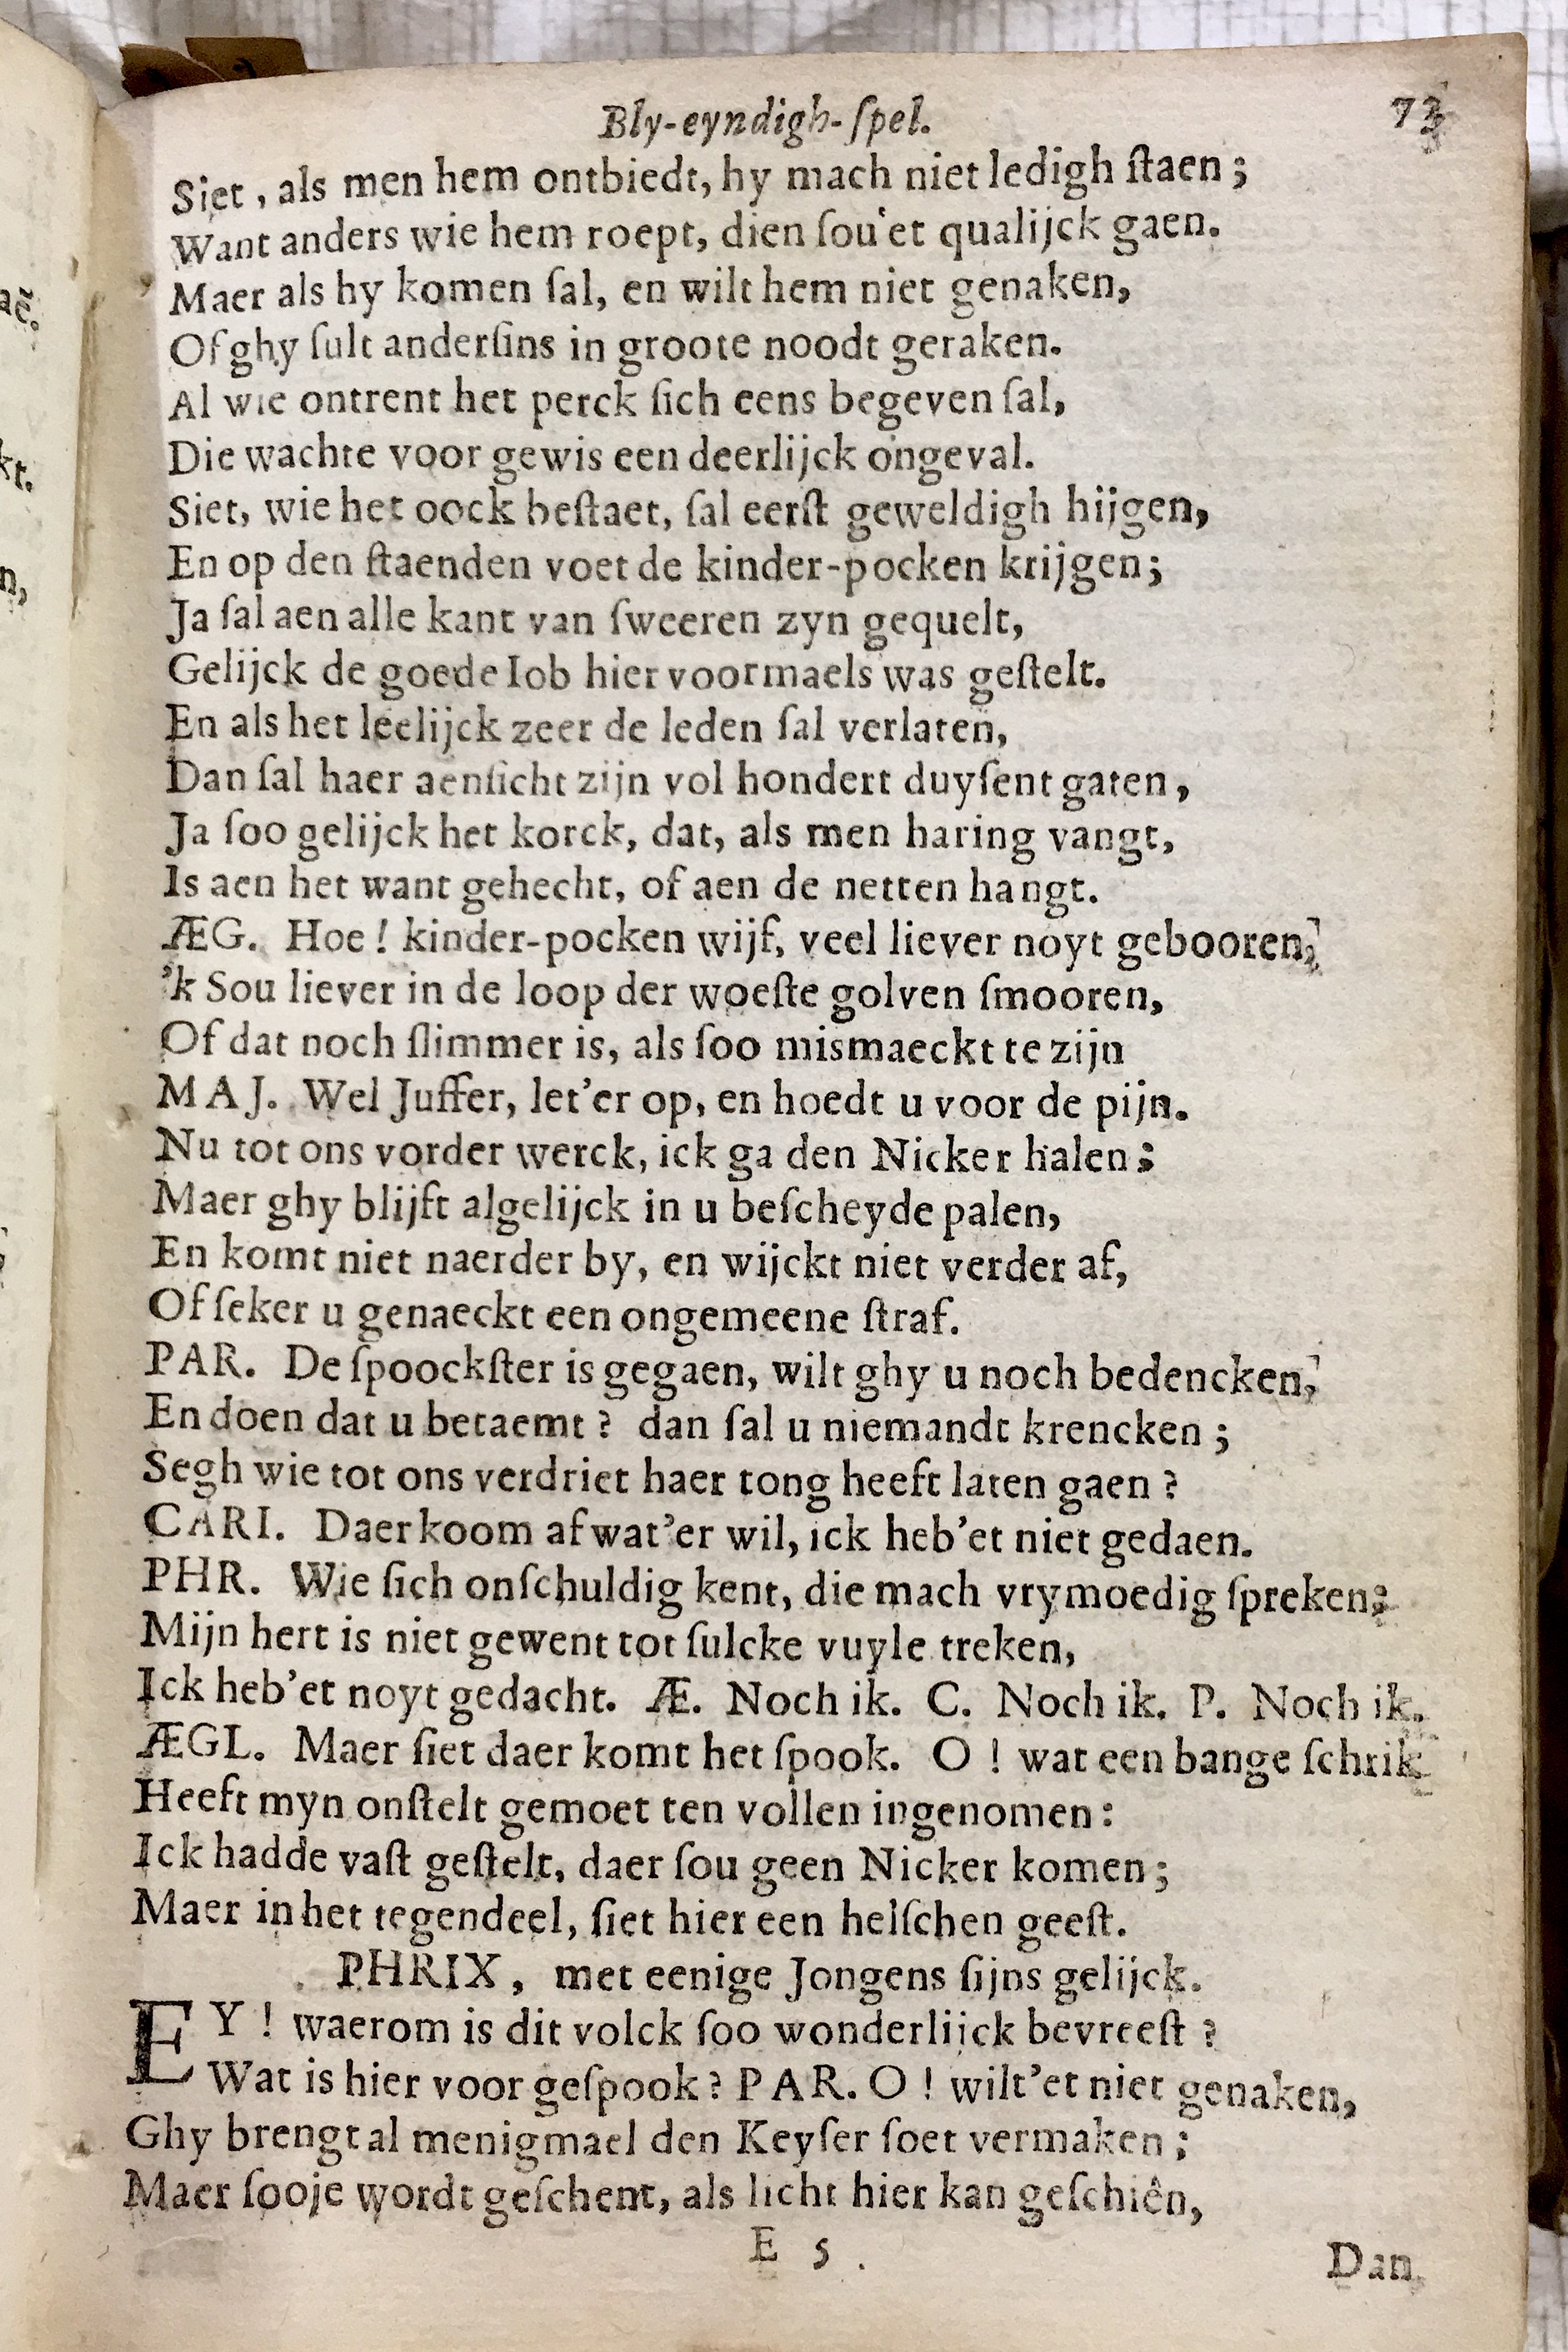 Bly-eyndigh-ſpel. 73
Siet, als men hem ontbiedt, hy mach niet ledigh ſtaen;
Want anders wie hem roept, dien ſou'et qualijck gaen.
Maer als hy komen ſal, en wilt hem niet genaken,
Of ghy ſult anderſins in groote noodt geraken.
Al wie ontrent het perck ſich eens begeven ſal,
Die wachte voor gewis een deerlijck ongeval.
Siet, wie het oock beſtaet, ſal eerſt geweldigh hijgen,
En op den ſtaenden voet de kinder-pocken krijgen;
Ja ſal aen alle kant van ſweeren zyn gequelt,
Gelijck de goede Iob hier voormaels was geſtelt.
En als het leelijck zeer de leden ſal verlaten,
Dan ſal haer aenſicht zijn vol hondert duyſent gaten,
Ja ſoo gelijck het korck, dat, als men haring vangt,
Is aen het want gehecht, of aen de netten hangt.
ÆG. Hoe! kinder-pocken wijf, veel liever noyt gebooren,
'k Sou liever in de loop der woeſte golven ſmooren,
Of dat noch ſlimmer is, als ſoo mismaeckt te zijn
MAJ. Wel Juffer, let'er op, en hoedt u voor de pijn.
Nu tot ons vorder werck, ick ga den Nicker halen;
Maer ghy blijft algelijck in u beſcheyde palen,
En komt niet naerder by, en wijckt niet verder af,
Of ſeker u genaeckt een ongemeene ſtraf.
PAR. De ſpoockſter is gegaen, wilt ghy u noch bedencken,
En doen dat u betaemt? dan ſal u niemandt krencken;
Segh wie tot ons verdriet haer tong heeft laten gaen?
CARI. Daer koom af wat'er wil, ick heb'et niet gedaen.
PHR. Wie ſich onſchuldig kent, die mach vrymoedig ſpreken;
Mijn hert is niet gewent tot ſulcke vuyle treken,
Ick heb'et noyt gedacht. Æ. Noch ik. C. Noch ik. P. Noch ik.
ÆGL. Maer ſiet daer komt het ſpook. O! wat een bange ſchrik
Heeft myn onſtelt gemoet ten vollen ingenomen:
Ick hadde vaſt geſtelt, daer ſou geen Nicker komen;
Maer in het tegendeel, ſiet hier een helſchen geeſt.
PHRIX, met eenige Jongens ſijns gelijck.
EY! waerom is dit volck ſoo wonderlijck bevreeſt?
Wat is hier voor geſpook? PAR. O! wilt'et niet genaken,
Ghy brengt al menigmael den Keyſer ſoet vermaken;
Maer ſooje wordt geſchent, als licht hier kan geſchiên,
E 5.
Dan